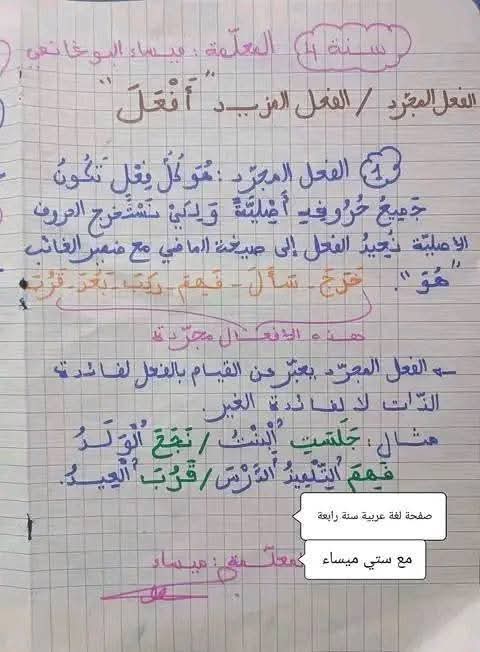 سنة 4 المعلّمة: ميساء البوغانمي
الفعل المجرّد / الفعل المزيد "أَفْعَلَ"
1 الفعل المجرّد: هُوَ كُلُّ فِعْلٍ تَكُونُ
جَمِيعُ حُرُوفِهِ أَصْلِيَّةً وَلِكَيْ نَسْتَخْرِجَ الحروف
الأصليّة نُعِيدُ الفعل إلى صيغة الماضي مع ضمير الغائب
"هُوَ".
خَرَجَ - سَأَلَ - فَهِمَ - رَكِبَ - بَعُدَ - قَرُبَ
هذه الأفعال مجرّدة
← الفعل المجرّد يعبّر عن القيام بالفعل لفائدة
الذّات لا لفائدة الغير.
مثال: جَلَسَتِ الْبِنْتُ / نَجَحَ الْوَلَدُ
فَهِمَ التِّلْمِيذُ الدَّرْسَ / قَرُبَ الْعِيدُ.
صفحة لغة عربية سنة رابعة
مع ستي ميساء
المعلّمة: ميساء